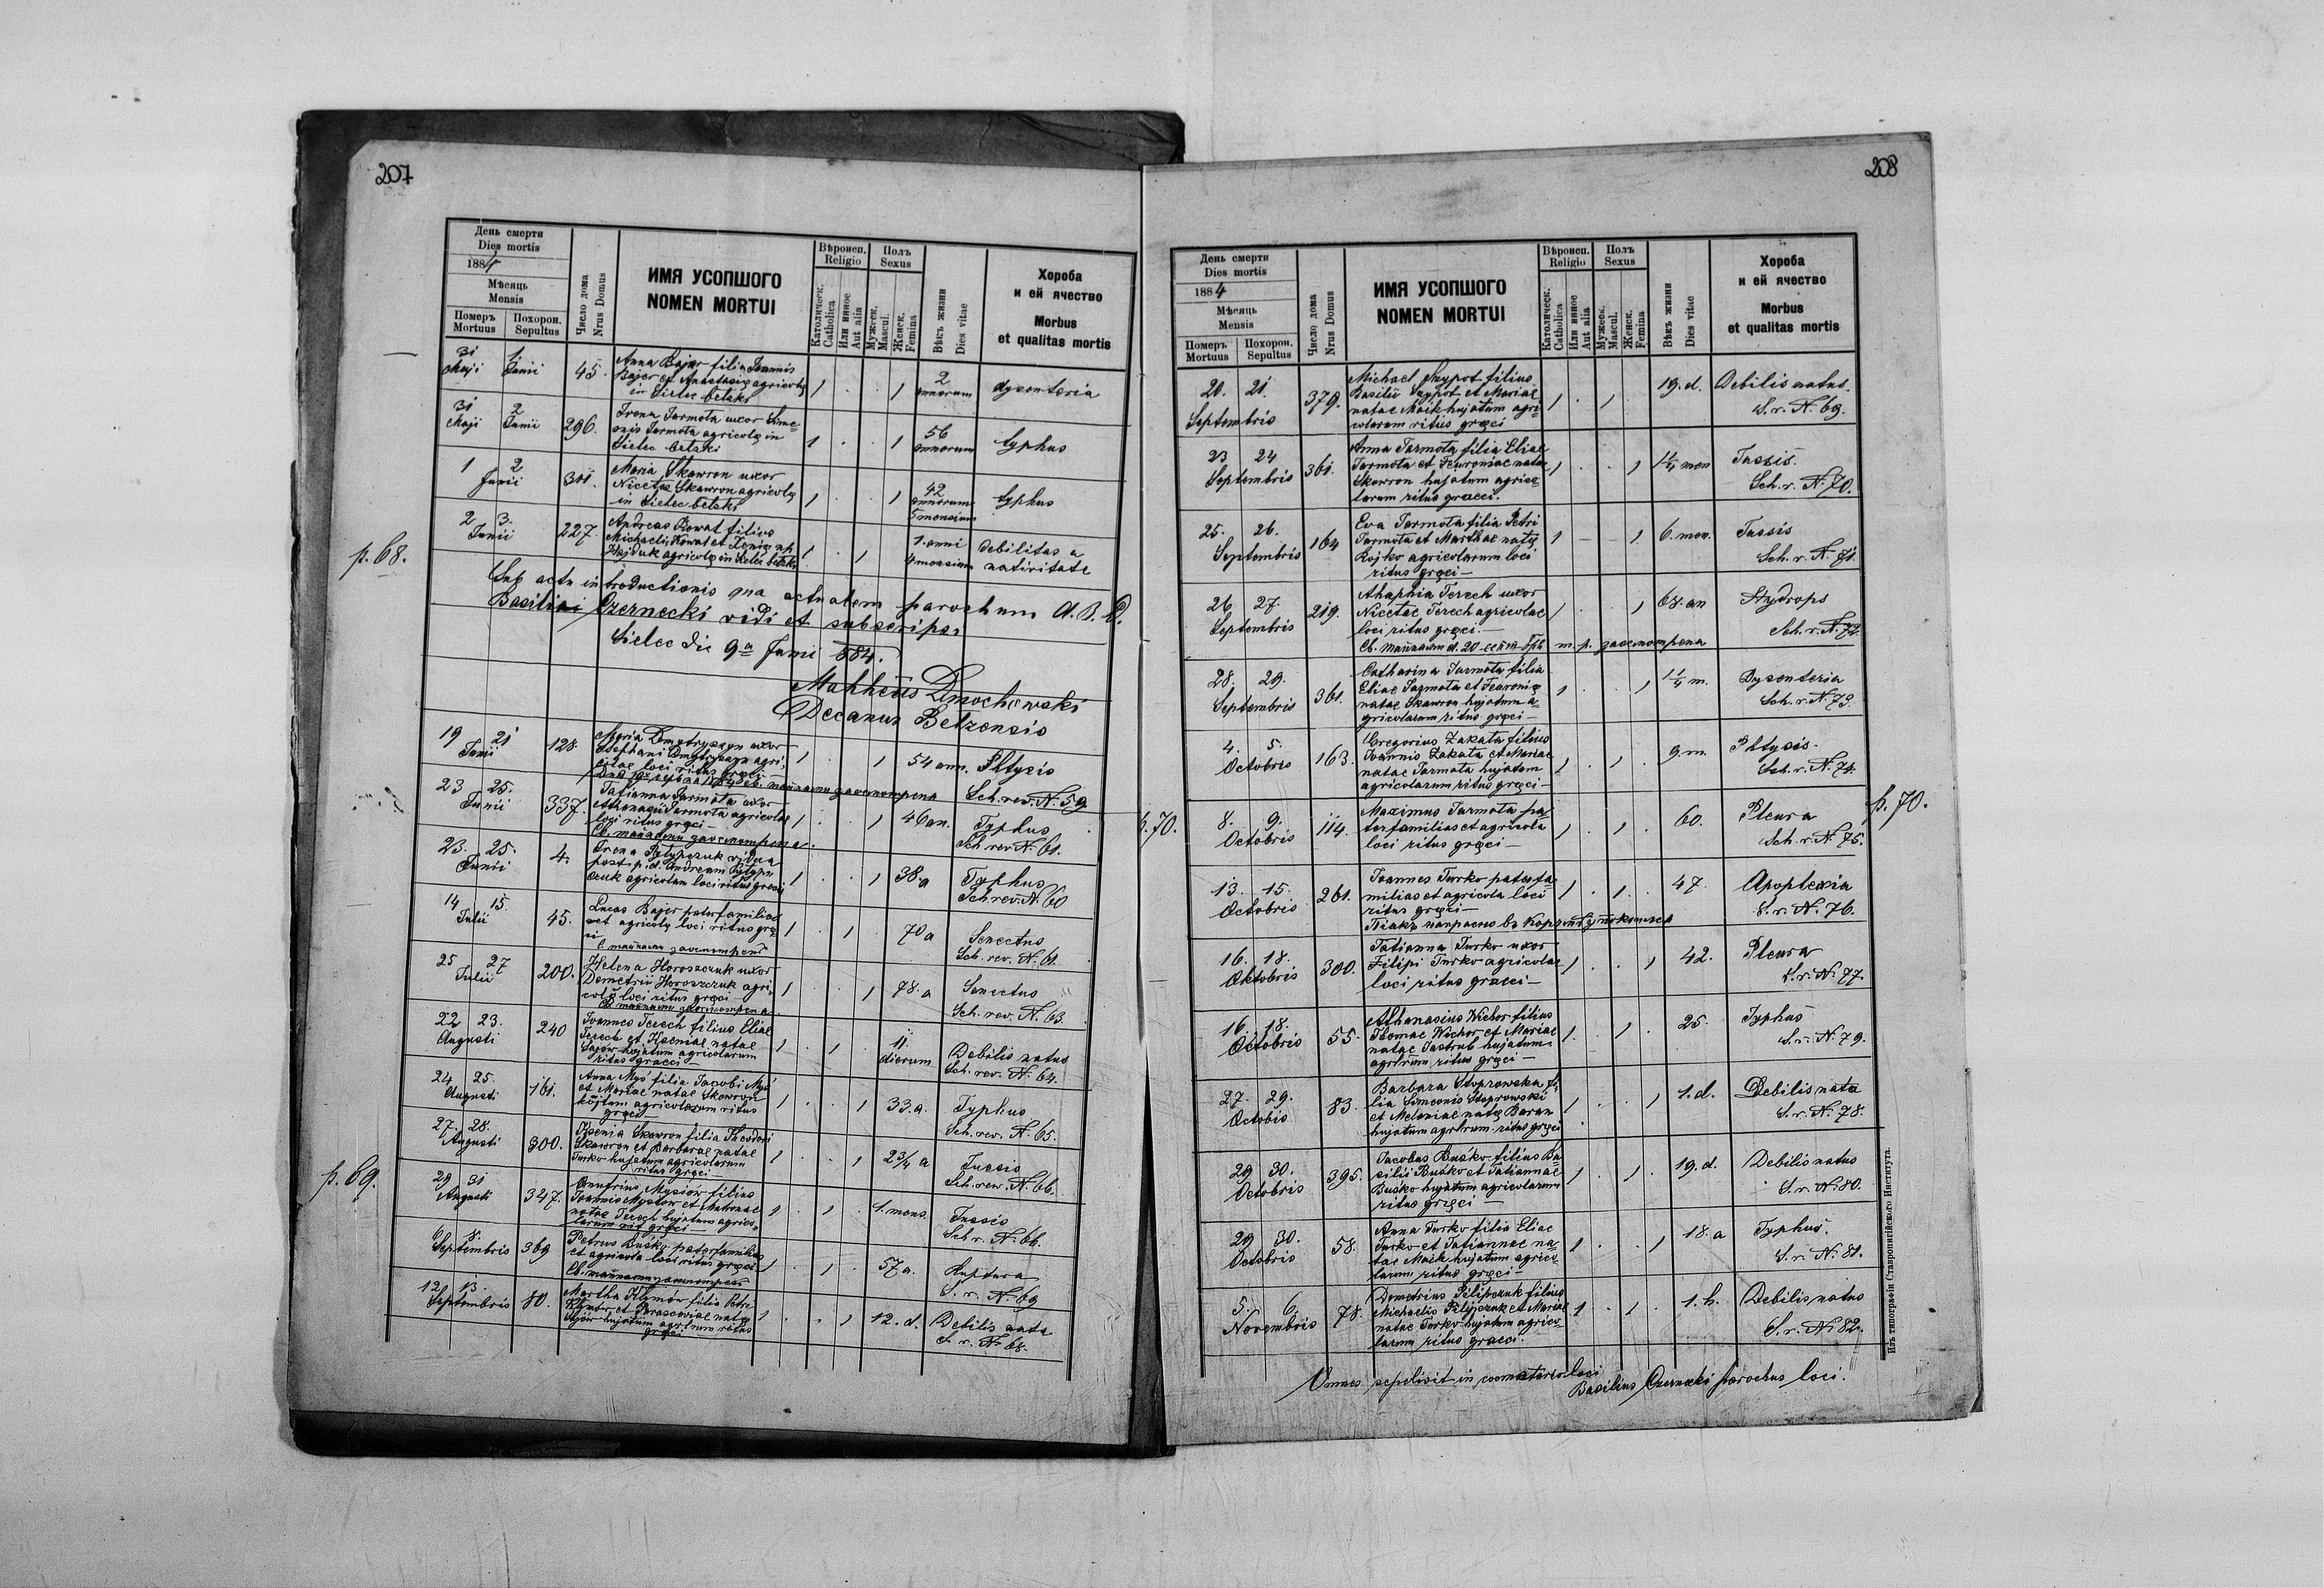 207
День смерти
Dies mortis
1884
Мѣсяць
Mensis
Померъ
Mortuus
Похорон.
Sepultus
Число дома
Nrus Domus
ИМЯ УСОПШОГО
NOMEN MORTUI
Вѣроисп.
Religio
Католическ.
Catholica
Или инное
Aut alia
Полъ
Sexus
Мужеск.
Mascul.
Женск.
Femina
Вѣкъ жизни
Dies vitae
Хороба
и ей ячество
Morbus
et qualitas mortis
31 Maji 1 Junii 45. Anna Bajer filia Joannis
Bajer et Anastasiæ agricolæ
in Sielec bełski 1 . . 1 2 annorum dysenteria
31 Maji 2 Junii 296. Irena Jarmoła uxor Sime-
onis Jarmoła agricolæ in
Sielec bełski 1 . . 1 56 annorum typhus
1 2 Junii 311. Maria Skawron uxor
Nicetæ Skawron agricolæ
in Sielec bełski 1 . . 1 42 annorum 5 mensium typhus
p. 68.
2 3. Junii 227. Andreas Kowal filius
Michaelis Kowal et Xeniæ
Hajduk agricolæ in Sielec bełski 1 . 1 1. anni 4 mensium debilitas a nativitate
Sub actu introductionis qua actualem parochum A. B. D.
Basilini Czernecki vidi et subscripsi
Sielec die 9a Junii 884.
Matheus Dmochowski
Decanus Belzensis
19 21 Junii 128. Maria Dmytryszyn uxor
Stephani Dmytryszyn agri-
colae loci ritus græci 1 . . 1 54 ann. Phtysis
Sch. rev. N. 59
23 25. Junii 337. Tatianna Jarmoła uxor
Athanasii Jarmoła agricolae
loci ritus græci 1 . . 1 46 an. Typhus
Sch rev N. 61.
23. 25. Junii 4. Irena Pyłypczuk vidua
post p. d. Andream Pyłyp-
czuk agricolam loci ritus græci 1 . . 1 38. a Typhus
Sch. rev. N. 60
14 15. Julii 45. Lucas Bajer paterfamilias
et agricola loci ritus græ-
ci 1 . 1 . 70 a Senectus
Sch. rev. N. 61.
25 27 Julii 200. Helena Horoszczuk uxor
Demetrii Horoszczuk agri-
colæ loci ritus græci 1 . . 1 78. a Senectus
Sch. rev. N. 63.
22 23. Augusti 240 Joannes Terech filius Eliae
Terech et Kseniae natae
Sajow hujatum agricolarum
ritus græci 1 . 1 . 11. dierum Debilis natus
Sch. rev. N. 64.
24 25. Augusti 161. Anna Myś filia Jacobi Myś
et Mariae natae Skawron
agricolarum ritus
græci 1 . . 1 33. a. Typhus
Sch. rev. N. 65.
27. 28. Augusti 300. Ksenia Skawron filia Theodori
Skawron et Barbarae natae
Turko hujatum agricolarum
ritus græci 1 . . 1 2 3/4 a Tussis
Sch. rev. N. 66.
p. 69.
29 31 Augusti 347. Onufrius Mysiów filius
Joannis Mysiow et Matronae
natae Terech hujatum agrico-
larum rit græci 1 . 1 . 1. mens. Tussis
Sch r. N. 66.
6 8. Septembris 369 Petrus Busko paterfamilias
et agricola loci ritus græci 1 . 1 . 57 a. Ruptura
S. r. N. 69
12 13. Septembris 80. Martha Klymów filia Petri
Klymow et Parascevae natæ
hujatum ritus
græci 1 . . 1 12. d. Debilis nata
S. r. N. 68.
208
День смерти
Dies mortis
1884
Мѣсяць
Mensis
Померъ
Mortuus
Похорон.
Sepultus
Число дома
Nrus Domus
ИМЯ УСОПШОГО
NOMEN MORTUI
Вѣроисп.
Religio
Католическ.
Catholica
Или инное
Aut alia
Полъ
Sexus
Мужеск.
Mascul.
Женск.
Femina
Вѣкъ жизни
Dies vitae
Хороба
и ей ячество
Morbus
et qualitas mortis
20. 21. Septembris 379. Michael filius
Basilii et Mariae
natae Maik hujatum agri-
colarum ritus græci 1 . 1 . 19. d. Debilis natus.
S. r. N. 69.
23 24 Septembris 361. Anna Jarmoła filia Eliae
Jarmoła et Fevroniae natae
Skawron hujatum agrico-
larum ritus graeci. 1 . . 1 1 1/4 mon Tussis.
Sch. r. N. 70.
25. 26. Septembris 164 Eva Jarmoła filia Petri
Jarmoła et Marthae natæ
Bojko agricolarum loci
ritus græci 1 – – 1 6. mon. Tussis
Sch. r. N. 71.
26 27. Septembris 219. Ahaphia Terech uxor
Nicetae Terech agricolae
loci ritus græci. 1 . . 1 68. an Hydrops
Sch. r. N. 72.
28. 29. Septembris 361. Catharina Jarmoła filia
Eliae Jarmoła et Fevroniæ
natae Skawron hujatum a-
gricolarum ritus græci 1 . . 1 1 1/4 m. Dysenteria
Sch. r. N. 73.
4. 5. Octobris 163. Gregorius Zakała filius
Joannis Zakała et Mariae
natae Jarmoła hujatum
agricolarum ritus græci 1 . 1 . 9. m. Phtysis.
Sch. r. N. 74.
p. 70. 8. 9. Octobris 114. Maximus Jarmoła pa-
terfamilias et agricola
loci ritus græci 1 . 1 . 60. Pleura
Sch. r. N. 75.
p. 70.
13. 15. Octobris 261. Joannes Turko paterfa-
milias et agricola loci
ritus græci 1 . 1 . 47. Apoplexia
S. r. N. 76.
16. 18. Oktobris 300. Tatianna Turko uxor
Filipi Turko agricolae
loci ritus graeci 1 . . 1 42. Pleura
S. r. N. 77.
16. 18. Octobris 55. Athanasius Wichor filius
Thomae Wichor et Mariae
natae Jastrub hujatum
ritus græci 1 . 1 . 25. Typhus
S. r. N. 79.
27. 29. Octobis 83. Barbara Stoprowska fi-
lia Simeonis Stoprowski
et Melaniae natæ Baran
hujatum ritus græci 1 . . 1 1. d. Debilis nata
S. r. N. 78.
29 30. Octobris 395. Jacobus Busko filius Ba-
silii Busko et Tatiannae
Busko hujatum agricolarum
ritus græci 1 . 1 . 19. d. Debilis natus
S. r. N. 80.
29 30. Octobris 58. Anna Turko filia Eliae
Turko et Tatiannae na-
tae Maik hujatum agrico-
larum ritus græci 1 . . 1 18. a Typhus.
S. r. N. 81.
5. 6. Novembris 78. Demetrius Pilipczuk filius
Michaelis Pilipczuk et Mariae
natae Turko hujatum agrico-
larum ritus graeci. 1 . 1 . 1. h. Debilis natus
S. r. N. 82.
Omnes sepelivit in coemeterio loci
Basilius Czernecki parochus loci.
Изъ типографіи Ставропигійского Института.